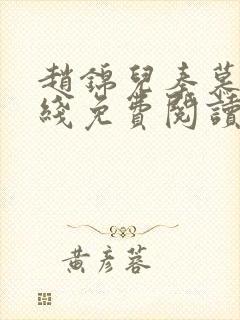 趙錦兒秦慕
綫免費閱讀
黃彥蓉